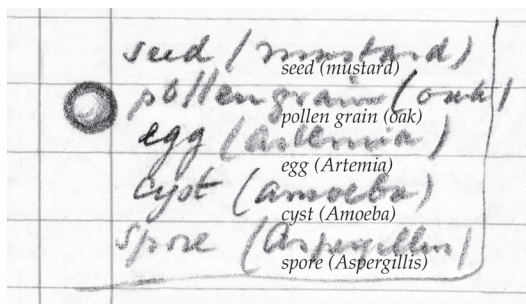 seed (mustard)
seed (mustard)
pollen grain (oak)
pollen grain (oak)
egg (Artemia)
egg (Artemia)
cyst (amoeba)
cyst (Amoeba)
spore (Aspergillus)
spore (Aspergillis)